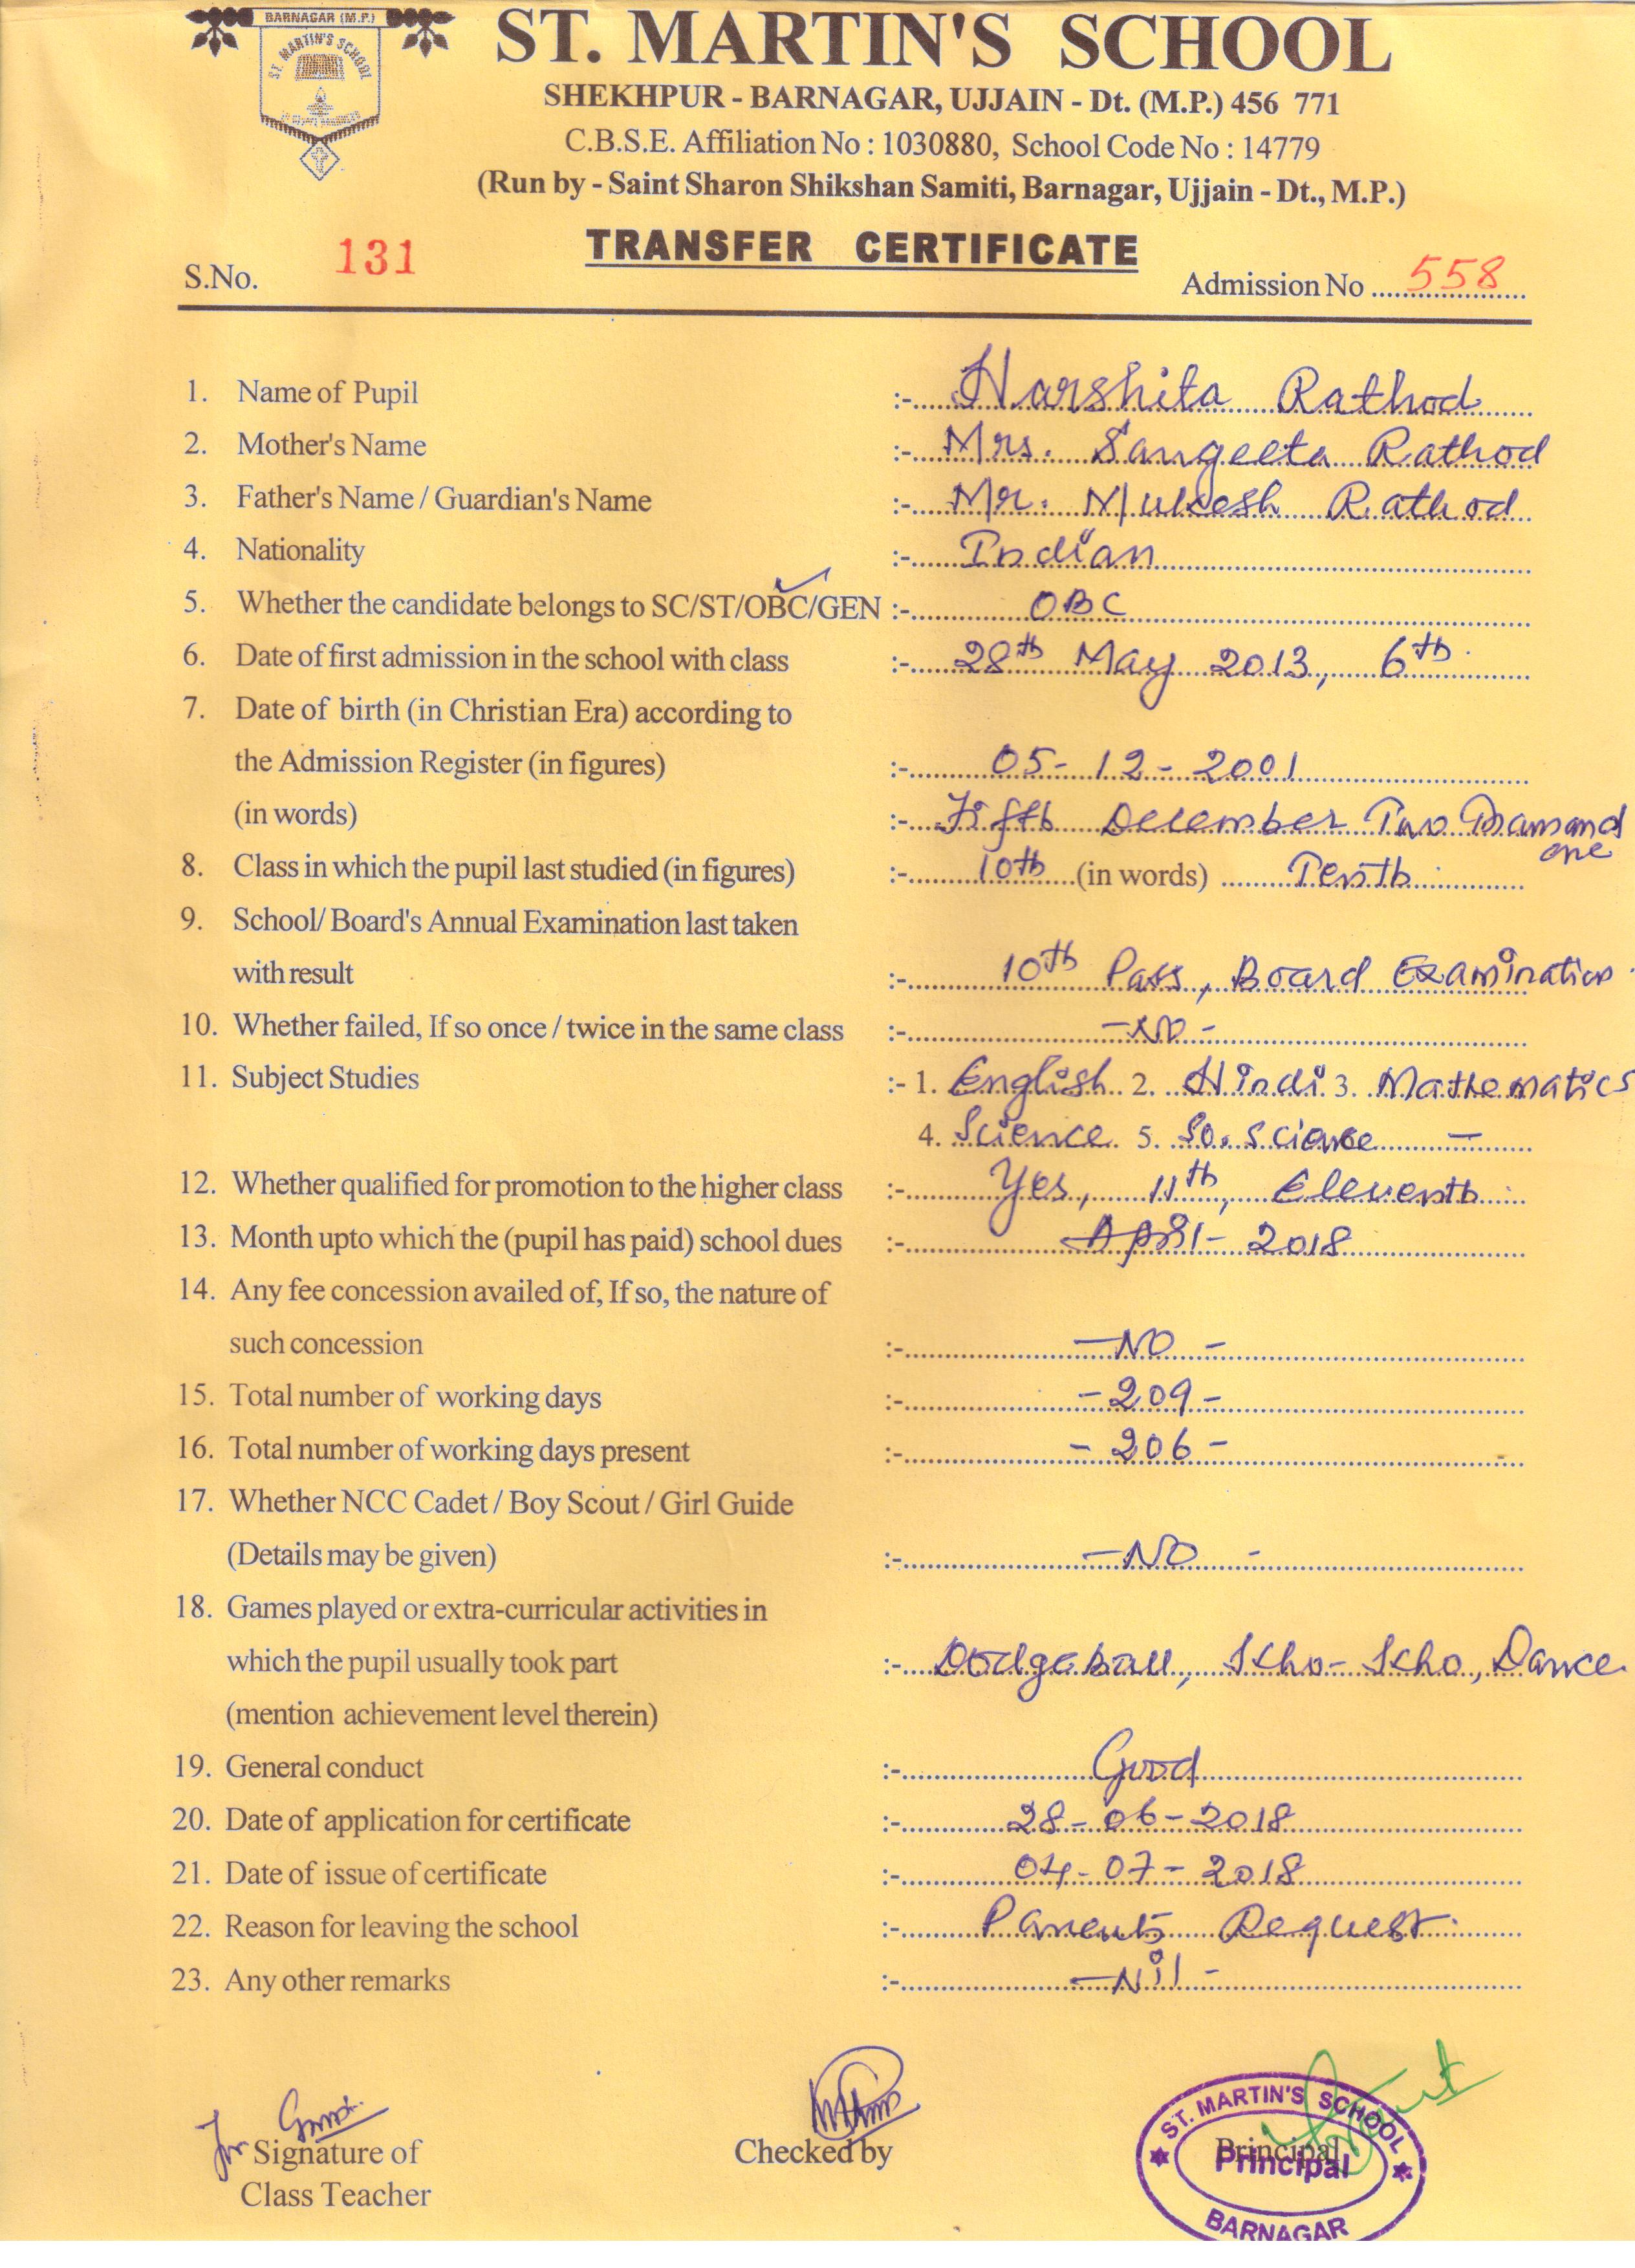 BARNAGAR (M.P.)
ST. MARTIN'S SCHOOL
ST. MARTIN'S SCHOOL
SHEKHPUR - BARNAGAR, UJJAIN - Dt. (M.P.) 456 771
C.B.S.E. Affiliation No : 1030880, School Code No : 14779
(Run by - Saint Sharon Shikshan Samiti, Barnagar, Ujjain - Dt., M.P.)
TRANSFER CERTIFICATE
S.No. 131 Admission No 558
1. Name of Pupil :- Harshita Rathod
2. Mother's Name :- Mrs. Sangeeta Rathod
3. Father's Name / Guardian's Name :- Mr. Mukesh Rathod
4. Nationality :- Indian
5. Whether the candidate belongs to SC/ST/OBC/GEN :- OBC
6. Date of first admission in the school with class :- 28th May 2013, 6th
7. Date of birth (in Christian Era) according to
the Admission Register (in figures) :- 05-12-2001
(in words) :- Fifth December Two Thousand
one
8. Class in which the pupil last studied (in figures) :- 10th (in words) Tenth
9. School/ Board's Annual Examination last taken
with result :- 10th Pass, Board Examination
10. Whether failed, If so once / twice in the same class :- -NO-
11. Subject Studies :- 1. English 2. Hindi 3. Mathematics
4. Science 5. So. Science —
12. Whether qualified for promotion to the higher class :- Yes, 11th, Eleventh
13. Month upto which the (pupil has paid) school dues :- April - 2018
14. Any fee concession availed of, If so, the nature of
such concession :- -NO-
15. Total number of working days :- -209-
16. Total number of working days present :- -206-
17. Whether NCC Cadet / Boy Scout / Girl Guide
(Details may be given) :- -NO-
18. Games played or extra-curricular activities in
which the pupil usually took part :- Dodgeball, Kho-Kho, Dance
(mention achievement level therein)
19. General conduct :- Good
20. Date of application for certificate :- 28-06-2018
21. Date of issue of certificate :- 04-07-2018
22. Reason for leaving the school :- Parents Request
23. Any other remarks :- -Nil-
Signature of
Class Teacher
Checked by
Principal
ST. MARTIN'S SCHOOL
Principal
BARNAGAR